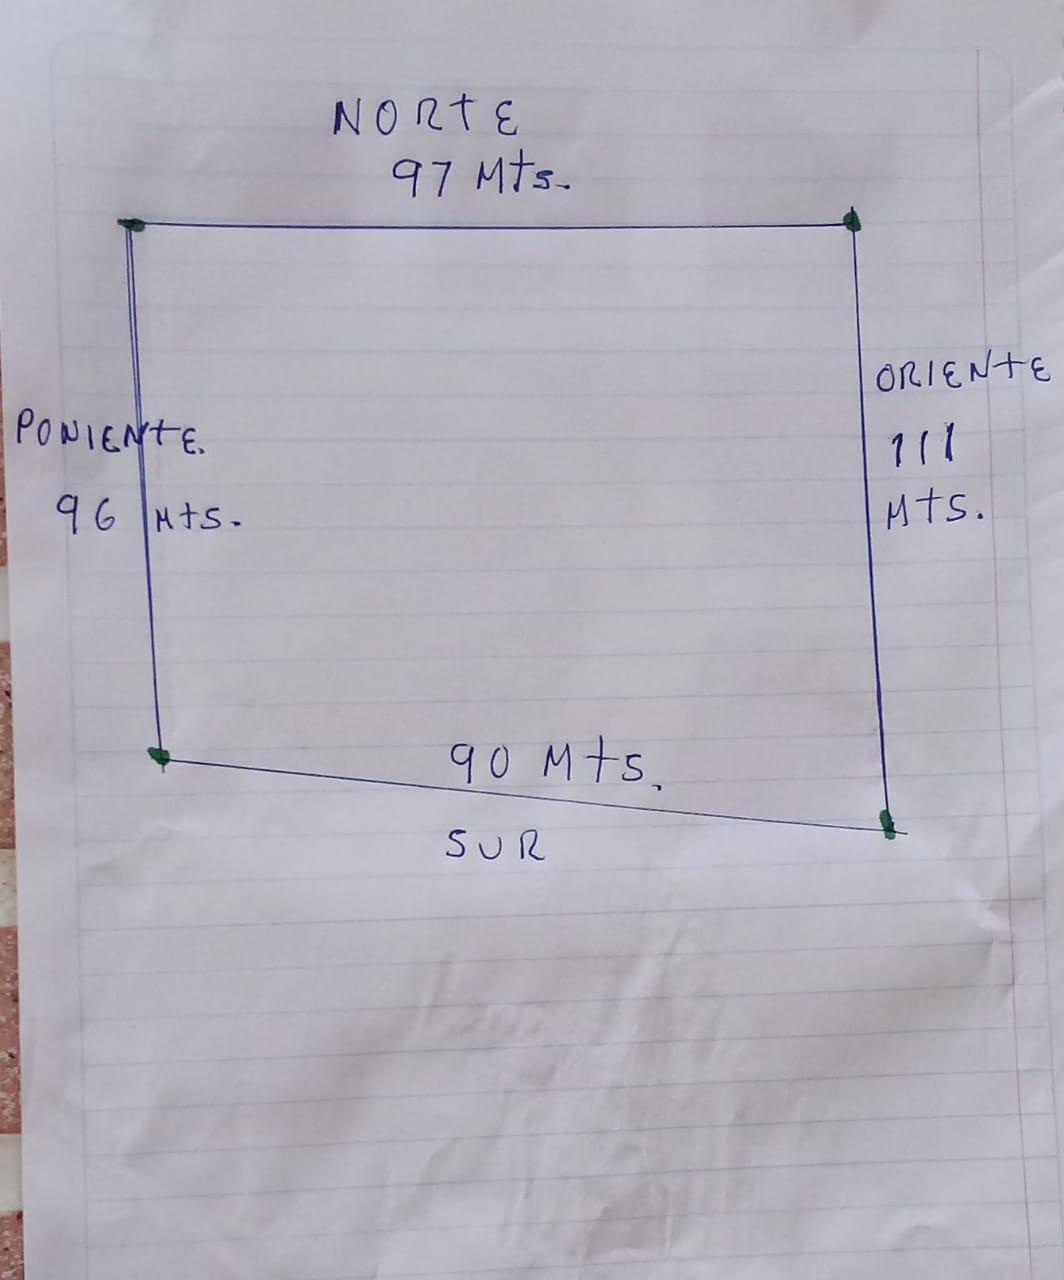 NORTE
97 Mts.
ORIENTE
111
Mts.
PONIENTE.
96 Mts.
90 Mts.
SUR